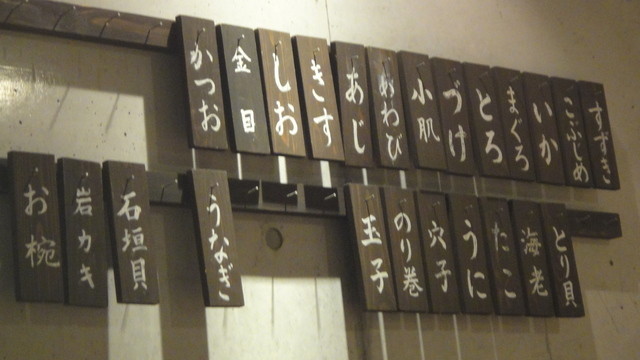 すずき
こぶじめ
いか
まぐろ
とろ
づけ
小肌
あわび
あじ
きす
しお
金目
かつお
とり貝
海老
たこ
うに
穴子
のり巻
玉子
うなぎ
石垣貝
岩カキ
お椀